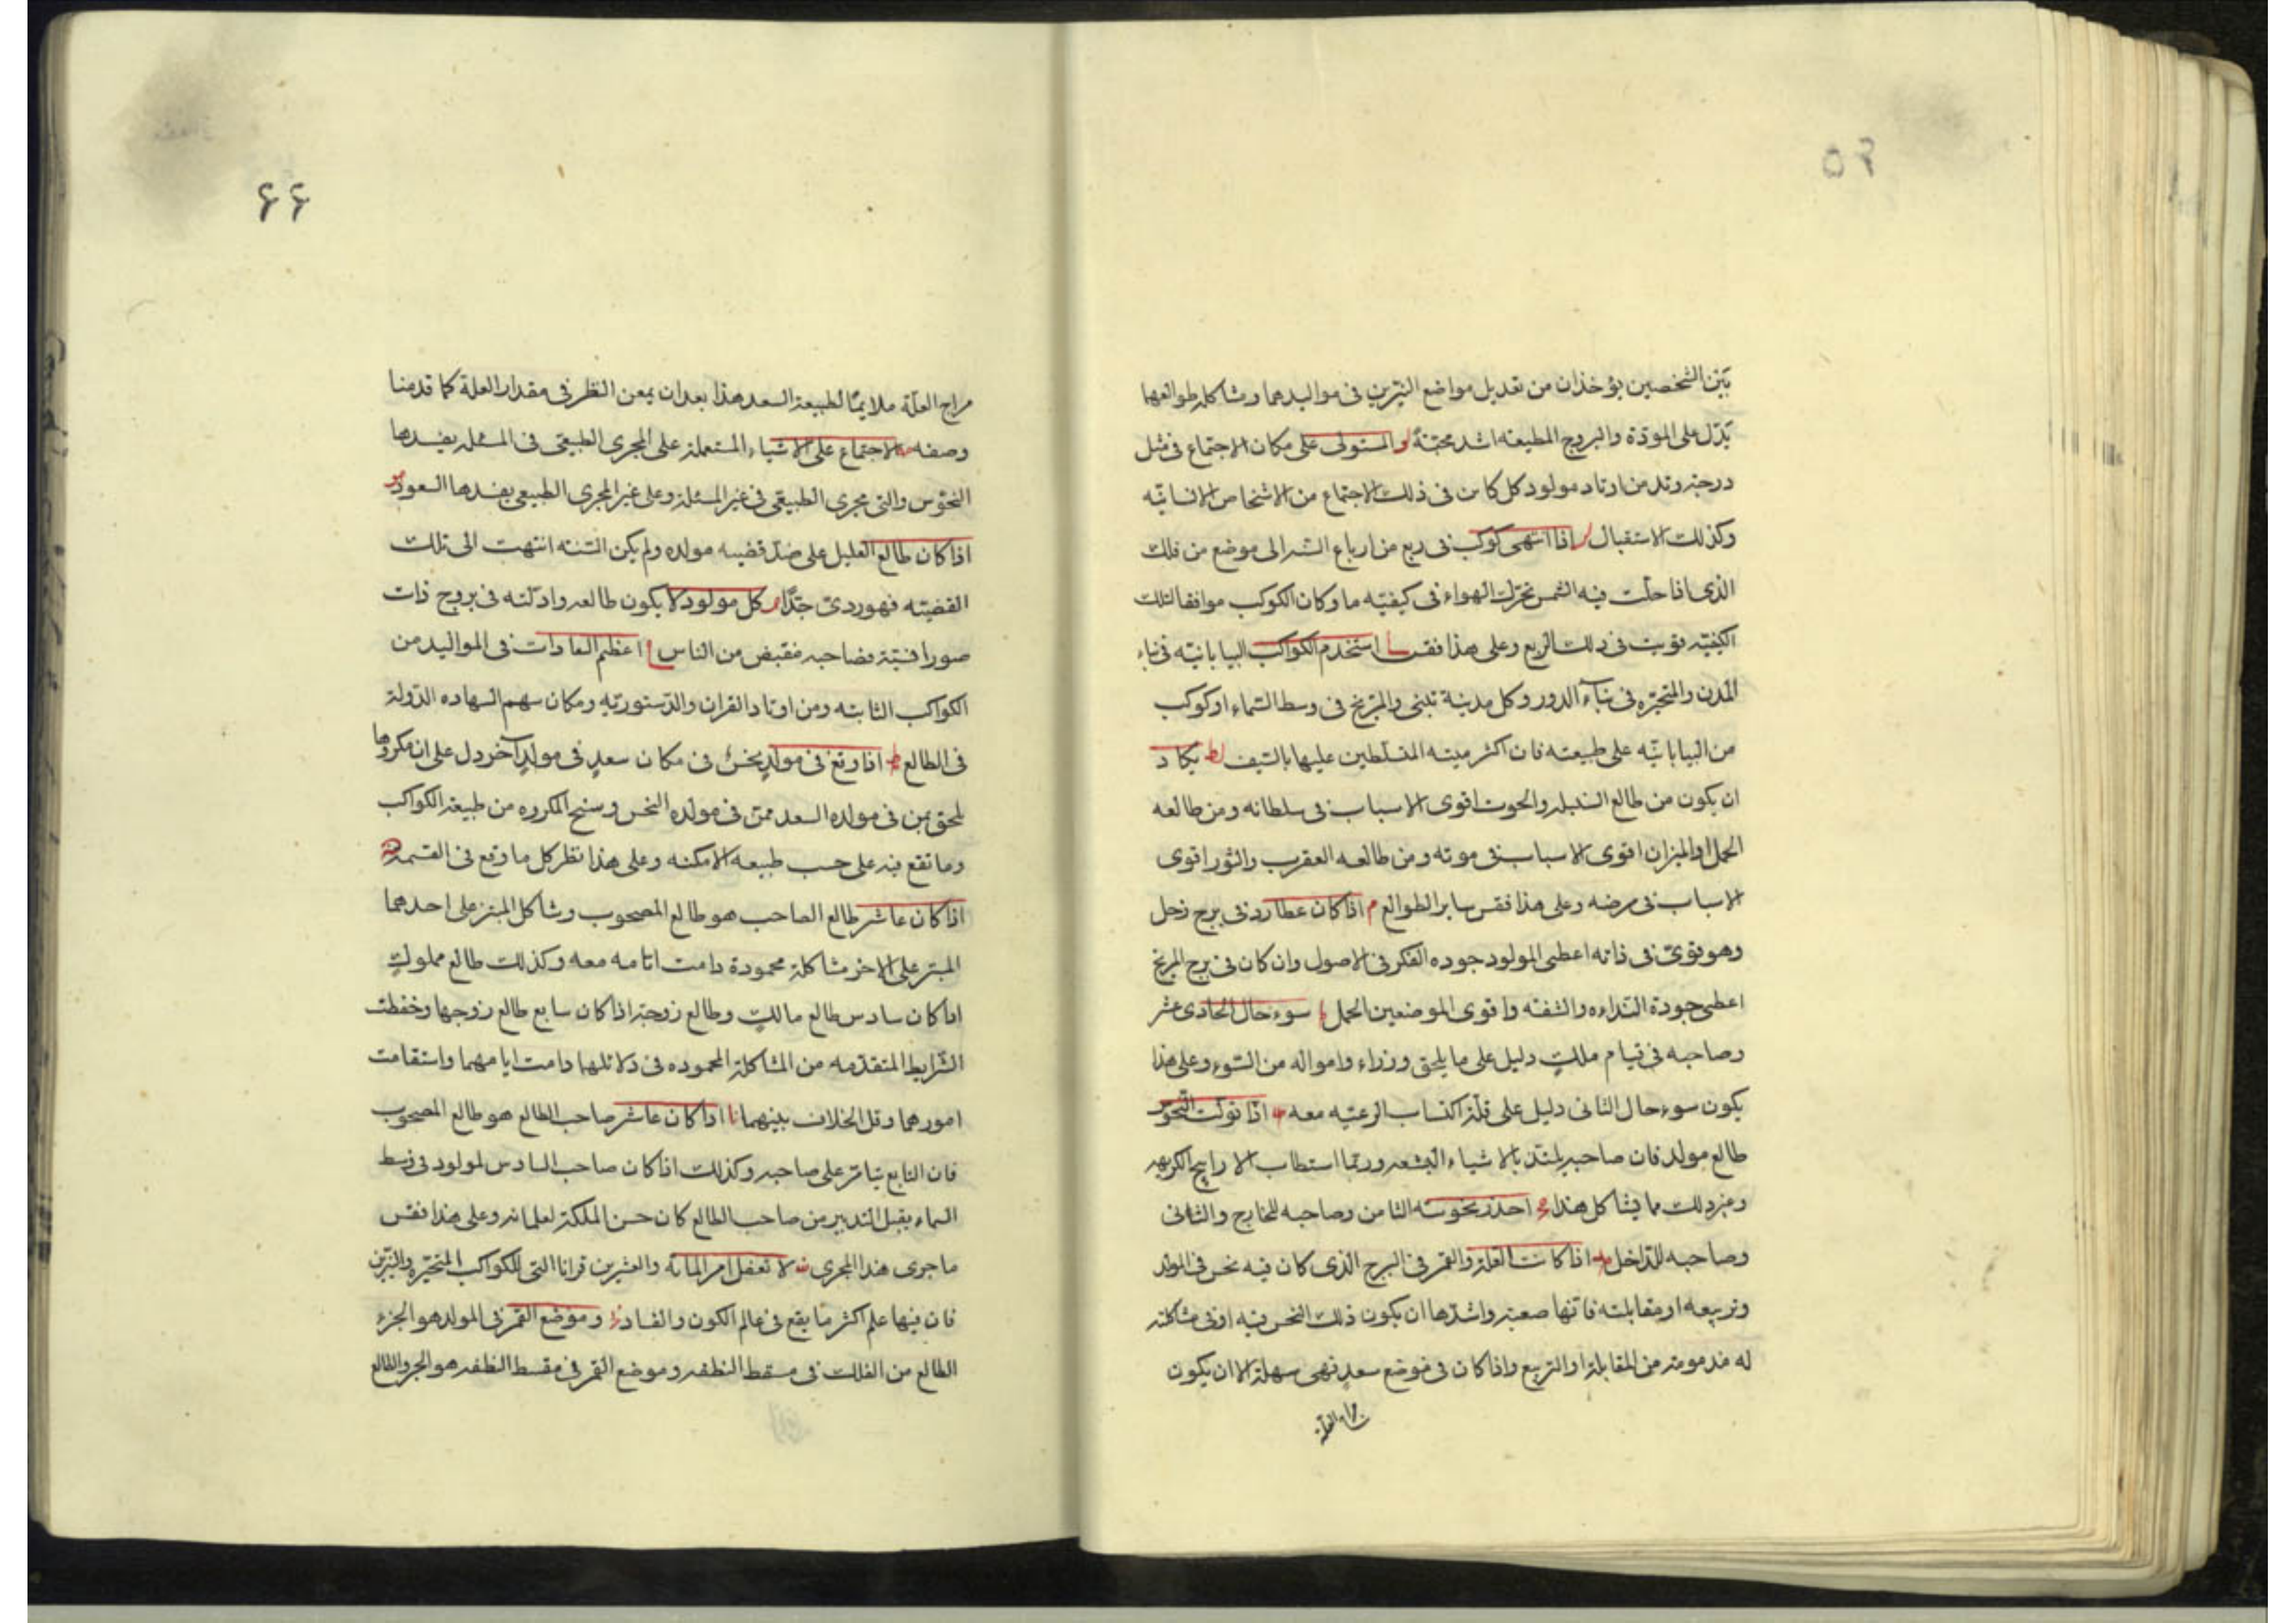 ۶۵
بين الشخصين يؤخذان من تعديل مواضع النيرين فى مواليدهما ومشاكله طوالعهما
يدل على المودة والبروج المطيعه اشد محبة لو المستولى على مكان الاجتماع فى مثل
درجته وتد من اوتاد مولود كل كاين فى ذلك الاجتماع من الاشخاص الانسانيه
وكذلك الاستقبال لز اذا انتهى كوكب فى ربع من ارباع السنه الى موضع من فلك
الذى اذا حلت فيه الشمس تحرك الهواء فى كيفيه ما وكان الكوكب موافقا لتلك
الكيفيه قويت فى ذلك الربع وعلى هذا فقس استخدم الكواكب البيابانيه فى بناء
المدن والمتحيره فى بناء الدور وكل مدينة تبنى والمريخ فى وسط السماء او كوكب
من البيابانيه على طبيعته فان اكثر ميته المتسلطين عليها بالسيف لط يكاد
ان يكون من طالع السنبله والحوت اقوى الاسباب فى سلطانه ومن طالعه
الحمل او الميزان اقوى الاسباب فى موته ومن طالعه العقرب والثور اقوى
الاسباب فى مرضه وعلى هذا فقس ساير الطوالع م اذا كان عطارد فى برج زحل
وهو قوى فى ذاته اعطى المولود جوده الفكر فى الاصول وان كان فى برج المريخ
اعطى جودة النداءه والشفه واقوى الموضعين الحمل ما سوء حال الحادى عشر
وصاحبه فى قيام ملك دليل على ما يلحق وزراء وامواله من السوء وعلى هذا
يكون سوء حال الثانى دليل على قلة اكتساب الرعيه معه مب اذا تولت النحوس
طالع مولد فان صاحبه يلتذ بالاشياء البشعه وربما استطاب الاراييح الكريهه
وغير ذلك مما يشاكل هذا مج احذر نحوسه الثامن وصاحبه للخارج والثانى
وصاحبه للداخل مد اذا كانت العلة والقمر فى البرج الذى كان فيه نحس فى المولد
وتربيعه او مقابلته فانها صعبة واشدها ان يكون ذلك النحس فيه او فى مشاكلته
له مذمومة من المقابلة او التربيع واذا كان فى موضع سعد فهى سهلة الا ان يكون
مزاج العلة
۶۶
مزاج العلة ملايمًا لطبيعة السعد هذا بعد ان يمعن النظر فى مقدار العلة كما قدمنا
وصفه مه الاجتماع على الاشياء المستعمله على المجرى الطبيعى فى المسئله يفسدها
النحوس والتى مجرى الطبيعى فى غير المسئله وعلى غير المجرى الطبيعى يفسدها السعود مو
اذا كان طالع العليل على ضد قضيه مولده ولم يكن السنه انتهت الى تلك
القضيه فهو ردئ جدًا مز كل مولود لا يكون طالعه وادلته فى بروج ذات
صور انسية فصاحبه منقبض من الناس اعظم السعادات فى المواليد من
الكواكب الثابته ومن اوتاد القران والدستوريه ومكان سهم السهاده الدولة
فى الطالع مط اذا وقع فى مولد نحس فى مكان سعد فى مولد آخر دل على ان مكروها
يلحق بمن فى مولده السعد ممن فى مولده النحس وسنح المكروه من طبيعة الكواكب
وما تقع فيه على حسب طبيعه الامكنه وعلى هذا نظر كل ما وقع فى القسمة
اذا كان عاشر طالع الصاحب هو طالع المصحوب وشاكل المبتز على احدهما
المبتز على الاخر مشاكلة محمودة دامت ايامه معه وكذلك طالع مملوك
اذا كان سادس طالع مالك وطالع زوجة اذا كان سابع طالع زوجها وحفظت
الشرايط المتقدمه من المشاكلة المحموده فى دلائلهما دامت ايامهما واستقامت
امورهما وقل الخلاف بينهما نا اذا كان عاشر صاحب الطالع هو طالع المصحوب
فان التابع يتامر على صاحبه وكذلك اذا كان صاحب السادس لمولود فى وسط
السماء يقبل التدبير من صاحب الطالع كان حسن الملكة لغلمانه وعلى هذا فقس
ما جرى هذا المجرى نب لا تغفل امر المائه والعشرين قرانا التى للكواكب المتحيره والنيرين
فان فيها علم اكثر ما يقع فى عالم الكون والفساد نج وموضع القمر فى المولد هو الجزء
الطالع من الفلك فى مسقط النطفه وموضع القمر فى مقسط النطفه هو الجزء الطالع